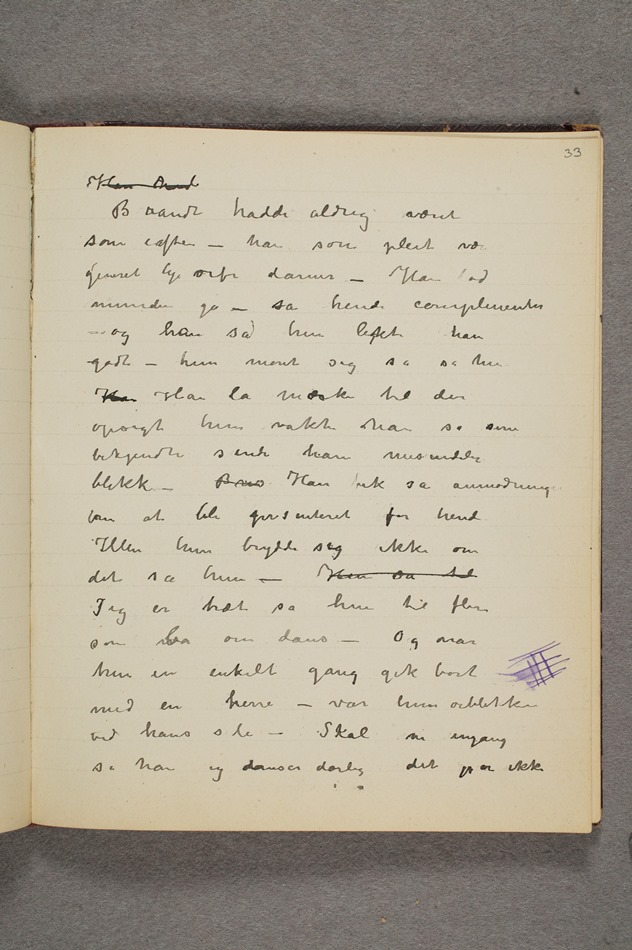 33
Han Brand
Brandt hadde aldrig været
som iaften – han som pleit væ
generet lige overfor damer – Han lod
munden gå – sa hende complimenter
– og han så hun likte han
godt – hun moret sig sa sa hun
Han Han la mærke til der
opsigt hun vakte han sa sine
bekjendte sende ham misundelige
blikk – Bran Han fik sa anmodninger
om at bli presenteret for hende
Men hun brydde sig ikke om
det sa hun – Hun sa til
Jeg er træt sa hun til flere
som ba om dans – Og naar
hun en enkelt gang gik bort
med en herre – var hun øieblikke
ved hans side – Skal vi engang
sa han jeg danser dårlig det gør ikke